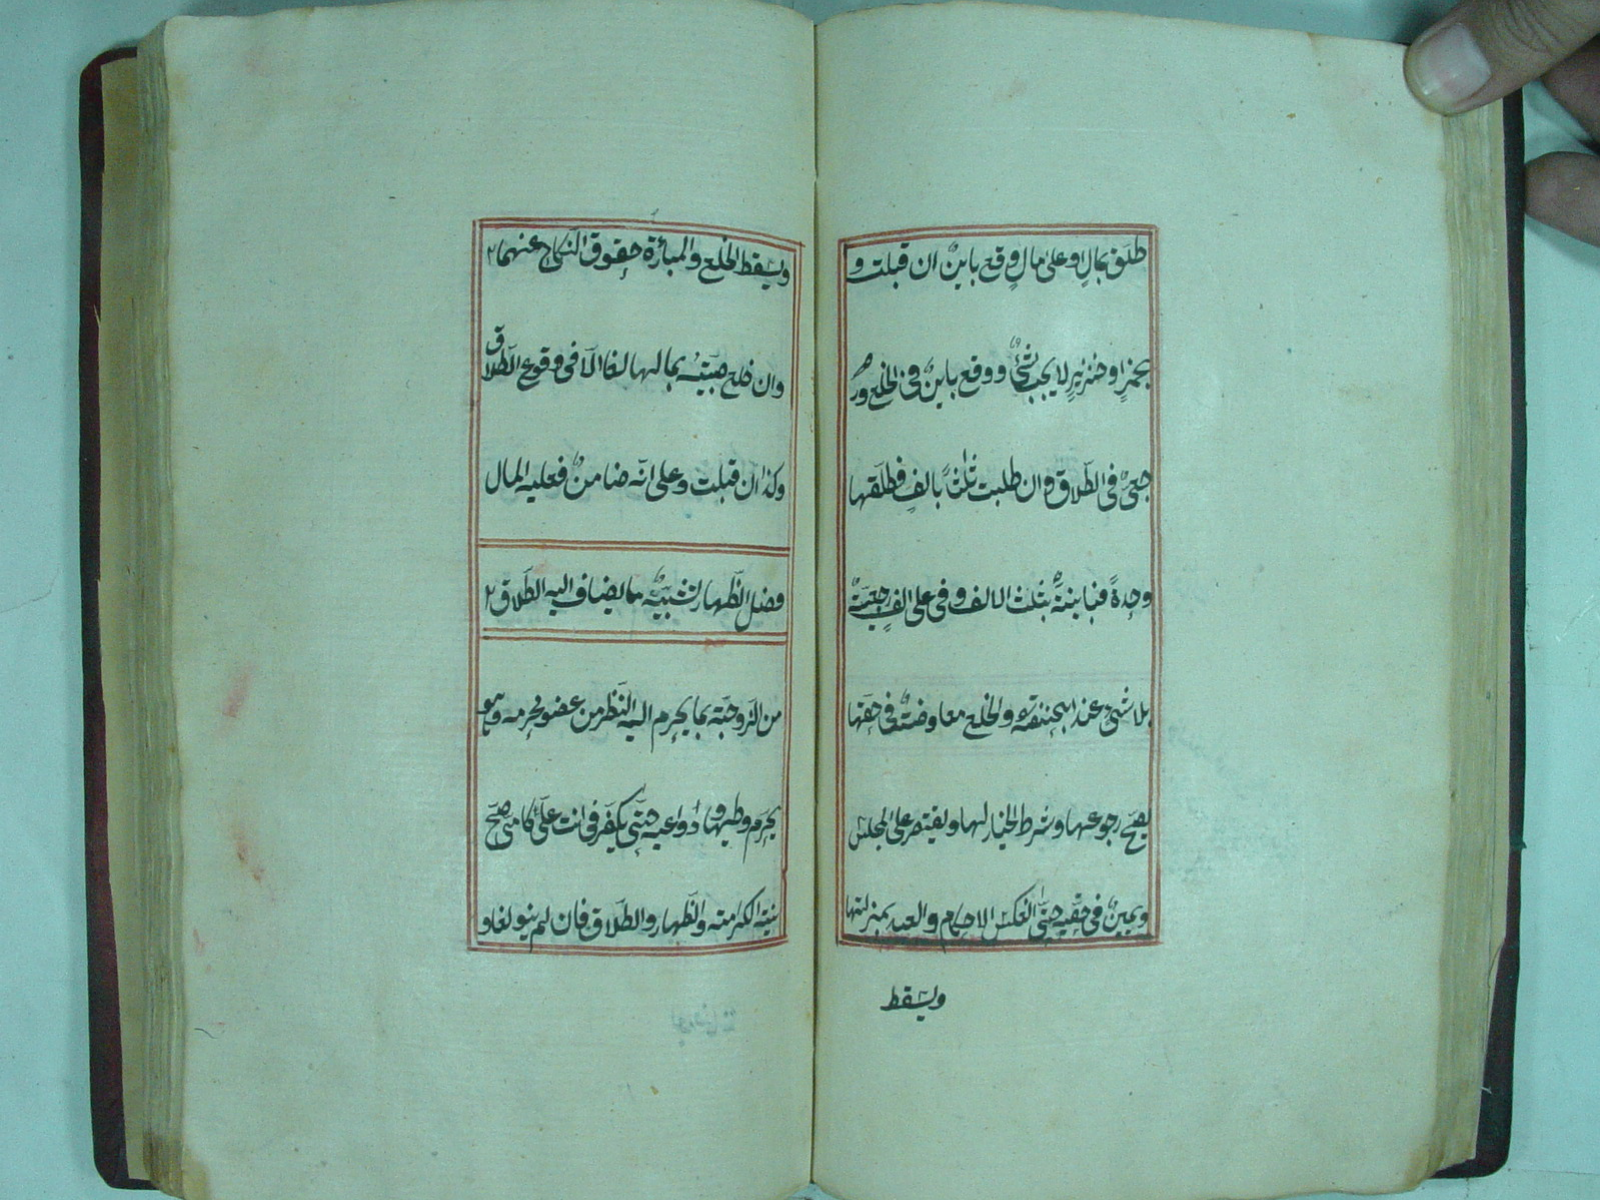 طلق بمالٍ او على مالٍ وقع باينٌ ان قبلت و
بخمرٍ او خنزيرٍ لا يجب شئٌ ووقع باينٌ في الخلع ور
جعىٌ في الطّلاق وان طلبت ثلثًا بالفٍ فطلّقها
وحدةً فباينةٌ بثلث الالف وفي على الفٍ رجعيّةٌ
بلا شئٍ عند ابيحنيفة والخلع معاوضةٌ في حقّها
يصحّ رجوعها وشرط الخيار لها ويقتصر على المجلس
ويمينٌ في حقّه حتّى انعكس الاحكام والعبد بمنزلتها
ويسقط
ويسقط الخلع والمبارٔة حقوق النّكاح عنهما
وان خلع صبيّته بمالها لغا الّا في وقوع الطّلاق
وكذا ان قبلت وعلى انّه ضامنٌ فعليه المال
فصل الظّهار تشبيه ما يضاف اليه الطّلاق
من الزّوجة بما يحرم اليه النّظر من عضو محرمه وهو
يحرّم وطيها ودواعيه حتّى يكفّر في انت علىّ كامّى صحّ
نيّة الكرامة والظّهار والطّلاق فان لم ينو لغا و